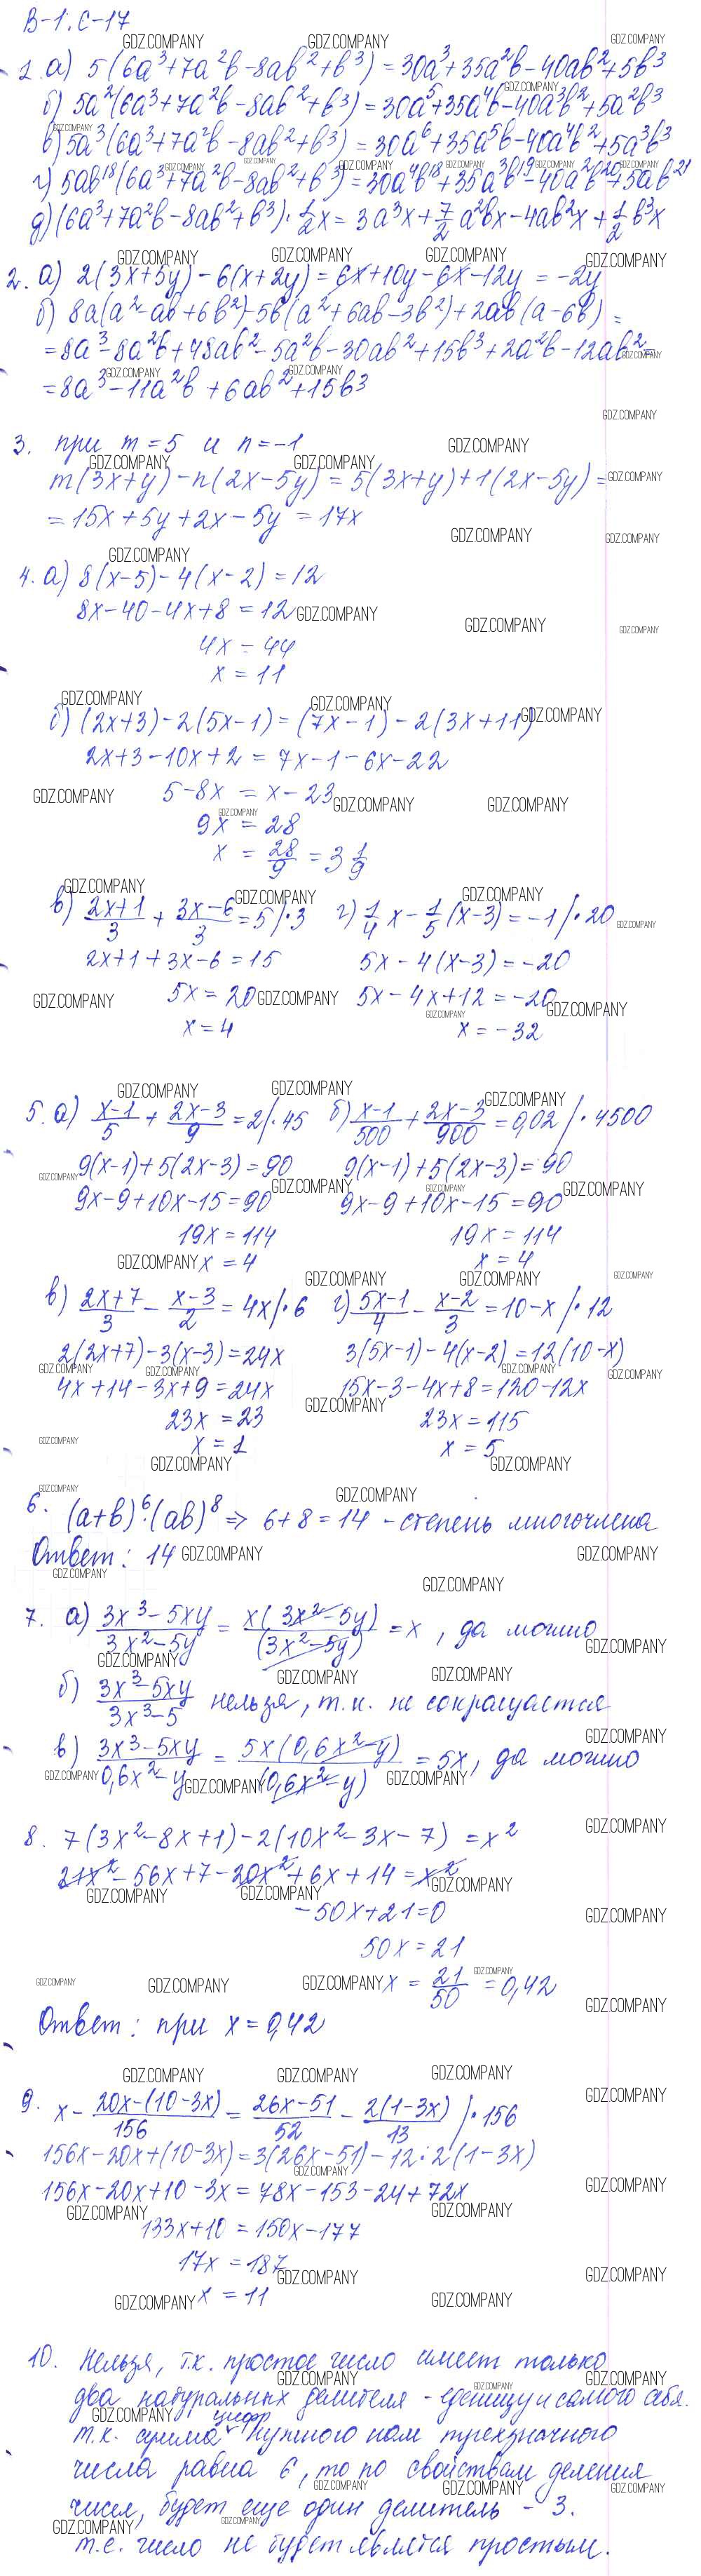 В-1. С-17
1. а) 5(6a³+7a²b-8ab²+b³) = 30a³+35a²b-40ab²+5b³
б) 5a²(6a³+7a²b-8ab²+b³) = 30a⁵+35a⁴b-40a³b²+5a²b³
в) 5a³(6a³+7a²b-8ab²+b³) = 30a⁶+35a⁵b-40a⁴b²+5a³b³
г) 5ab¹⁸(6a³+7a²b-8ab²+b³) = 30a⁴b¹⁸+35a³b¹⁹-40a²b²⁰+5ab²¹
д) (6a³+7a²b-8ab²+b³)·1/2x = 3a³x+7/2a²bx-4ab²x+1/2b³x
2. а) 2(3x+5y)-6(x+2y) = 6x+10y-6x-12y = -2y
б) 8a(a²-ab+6b²)-5b(a²+6ab-3b²)+2ab(a-6b) =
= 8a³-8a²b+48ab²-5a²b-30ab²+15b³+2a²b-12ab² =
= 8a³-11a²b+6ab²+15b³
3. при m=5 и n=-1
m(3x+y)-n(2x-5y) = 5(3x+y)+1(2x-5y) =
= 15x+5y+2x-5y = 17x
4. а) 8(x-5)-4(x-2) = 12
8x-40-4x+8 = 12
4x = 44
x = 11
б) (2x+3)-2(5x-1) = (7x-1)-2(3x+11)
2x+3-10x+2 = 7x-1-6x-22
5-8x = x-23
9x = 28
x = 28/9 = 3 1/9
в) (2x+1)/3 + (3x-6)/3 = 5 /·3 г) 1/4x - 1/5(x-3) = -1 /·20
2x+1+3x-6 = 15 5x-4(x-3) = -20
5x = 20 5x-4x+12 = -20
x = 4 x = -32
5. а) (x-1)/5 + (2x-3)/9 = 2 /·45 б) (x-1)/500 + (2x-3)/900 = 0,02 /·4500
9(x-1)+5(2x-3) = 90 9(x-1)+5(2x-3) = 90
9x-9+10x-15 = 90 9x-9+10x-15 = 90
19x = 114 19x = 114
x = 4 x = 4
в) (2x+7)/3 - (x-3)/2 = 4x /·6 г) (5x-1)/4 - (x-2)/3 = 10-x /·12
2(2x+7)-3(x-3) = 24x 3(5x-1)-4(x-2) = 12(10-x)
4x+14-3x+9 = 24x 15x-3-4x+8 = 120-12x
23x = 23 23x = 115
x = 1 x = 5
6. (a+b)⁶·(ab)⁸ ⇒ 6+8 = 14 - степень многочлена
Ответ: 14
7. а) (3x³-5xy)/(3x²-5y) = x(3x²-5y)/(3x²-5y) = x, да можно
б) (3x³-5xy)/(3x³-5) нельзя, т.к. не сокращается
в) (3x³-5xy)/(0,6x²-y) = 5x(0,6x²-y)/(0,6x²-y) = 5x, да можно
8. 7(3x²-8x+1)-2(10x²-3x-7) = x²
21x²-56x+7-20x²+6x+14 = x²
-50x+21 = 0
50x = 21
x = 21/50 = 0,42
Ответ: при x = 0,42
9. x - (20x-(10-3x))/156 = (26x-51)/52 - 2(1-3x)/13 /·156
156x-20x+(10-3x) = 3(26x-51)-12·2(1-3x)
156x-20x+10-3x = 78x-153-24+72x
133x+10 = 150x-177
17x = 187
x = 11
10. Нельзя, т.к. простое число имеет только
два натуральных делителя - еденицу и самого себя.
т.к. сумма цифр нужного нам трехзначного
числа равна 6, то по свойствам деления
чисел, будет еще один делитель - 3.
т.е. число не будет является простым.
GDZ.COMPANY